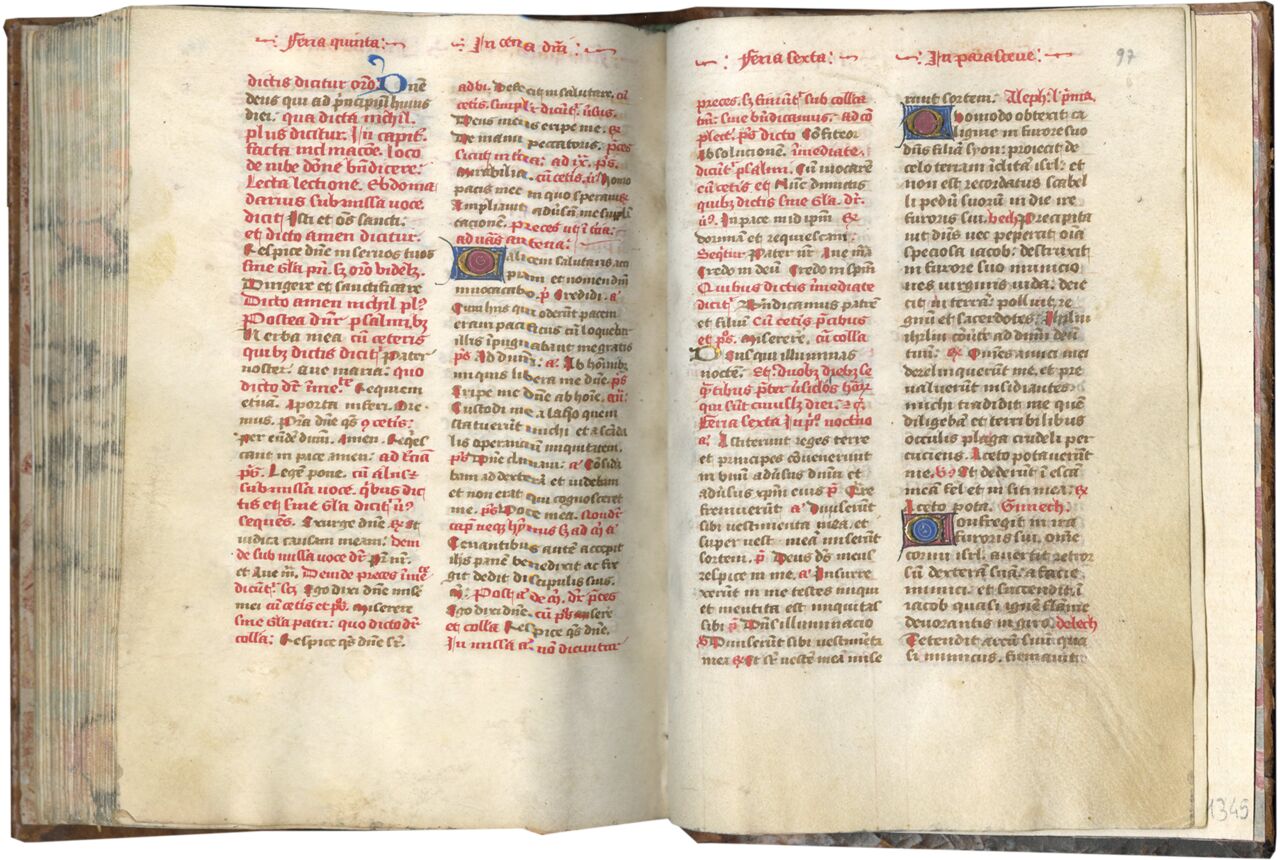 Feria quinta:
In cena dm̄i
dictis dicitur orō. Dn̄e
deus qui ad pn̄cipiū huius
diei. qua dicta nichil
plus dicitur. In capit.
facta inclinacōe. loco
de iube dōne bn̄dicere:
Lecta lectione. Ebdoma
darius submissa voce
dicit Isti et om̄s sancti.
et dicto amen dicitur.
Respice dn̄e in servos tuos
sine gl̄a pr̄i. sꝫ orō
Dirigere et sanctificare
Dicto amen nichil plꝰ
Postea dn̄r psalmi bꝫ
Verba mea cū ceteris
quibꝫ dictis dicit Pater
noster. Ave maria. quo
dicto Requiem
et̄nā. A porta inferi. Ore
mus.
Per eūdē dn̄m. Amen. Reqies
cant in pace amen. ad t̄ciā
pꝰ. Legē pone. cū aliis
submissa voce. qibus dic
tis et sine gl̄a dicit̄ v̄ꝰ
sequēs. Exurge dn̄e et
iudica causam meam. dein
de submissa voce Pr̄ nr̄.
et Ave m̄. Deinde preces
Ego dixi dn̄e mise
mei cū cetis et pꝰ. Miserere
sine gl̄a patri. quo dicto
colla. Respice qs dn̄e. sr̄.
cetis.
Deus meus eripe me. et
de manu peccatoris. p̄ces
sicut in t̄cia. ad ix. pꝰ.
Mirabilia. cū cetis. v̄ꝰ Homo
pacis mee in quo speravi et
Ampliavit advsū me supplā
tacionē. preces ut ī t̄cia.
Calicem salutaris acci
piam et nomen dn̄i
invocabo. pꝰ Credidi. a͞
Cum hiis qui oderūt pacem
eram pacificus cū loquebar
illis īpugnabant me gratis
pꝰ Ad dn̄m. a͞. Ab hōinibꝫ
iniquis libera me dn̄e. pꝰ
Eripe me dn̄e ab hoīe. añ.
Custodi me a laqo quem
statuerūt michi et a scāda
lis operancīū iniquitatem.
pꝰ Dn̄e clamavi. a͞ Cōsida
bam ad dexterā et videbam
et non erat qui cognosceret
me. pꝰ Voce mea.
Cenantibus autē accepit
ihs̄ panē benedixit ac fre
git dedit discipulis suis.
Ego dixi dn̄e. cū pꝰ misere
et colla Respice qs dn̄e.
In missa non dicuntur
Feria sexta:
In parasceve:
97
preces. sꝫ finiūt sub collca
sine bn̄dicamus. ad cō
plect. pꝰ dicto Cōfiteor
Absolucionē. īmediate.
dicūt psalmi. Cū invocarē
cū cetis et Nūc dimittis
quibꝫ dictis sine gl̄a. dr̄.
v̄ꝰ. In pace in id ipm̄. et
dormiā et requiescam.
Seqtur Pater nr̄. Ave m̄a
Credo in deū. Credo in spm̄
Quibus dictis īmediate
dicit Bn̄dicamus patrē
et filiū. cū cetis p̄cibus
et pꝰ. Miserere. cū colla
Deus qui illuminas
noctē. Et duobꝫ diebꝫ se
qūtibus
qui sūt cuiuslꝫ diei.
Feria sexta In pꝰ nocturno
a͞. Astiterunt reges terre
et principes cōvenerunt
in unū advsus dn̄m et
advsus xpm̄ eius pꝰ Qre
fremuerūt a͞ Diviserūt
sibi vestimenta mea. et
super vestē meā miserūt
sortem. pꝰ Deus ds̄ meus
respice in me. a͞ Insurre
xerūt in me testes iniqui
et mentita est iniquitas
sibi pꝰ Dn̄s illuminacio
v̄ꝰ Diviserunt sibi vestimēta
mea et sr̄ vestē meā mise
runt sortem. Aleph.
Quomodo obtexit ca
ligine in furore suo
dn̄s filiā syon. proiecit de
celo terram īclitā isrl̄. et
non est recordatus scabel
li pedū suorū in die ire
furoris sui. beth Precipita
vit dn̄s nec pepercit oīa
speciosa iacob. destruxit
in furore suo municio
nes virginis iuda. deie
cit in terrā. polluit re
gnū et sacerdotes. Ihrl̄m
ihrl̄m cōvte ad dn̄m deū
tuū. ℞. Om̄es amici mei
derelinquerūt me. et pre
valuerūt insidiantes
michi tradidit me quē
diligebā et terribilibus
occulis plaga crudeli per
cuciens. Aceto potaverūt
me. v̄ꝰ Et dederūt ī escā
meā fel et in siti mea. et
Aceto pota. Gimech.
Confregit in ira
furoris sui. omne
cornu isrl̄. avertit retror
sū dexterā suā. a facie
inimici et succendit ī
iacob quasi ignē flāme
devorantis in giro. delech
Tetendit arcū suū qua
si inimicus. firmavit
1345